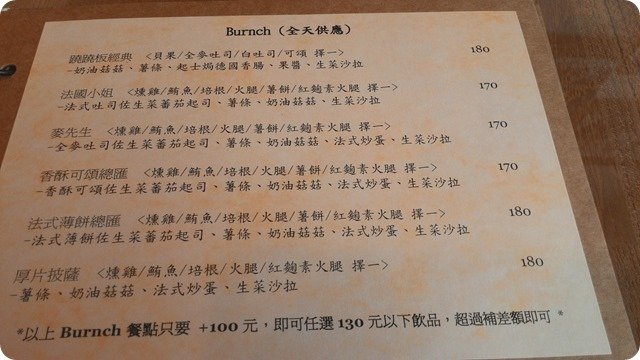 Burnch（全天供應）
蹺蹺板經典 <貝果/全麥吐司/白吐司/可頌 擇一> 180
-奶油菇菇、薯條、起士焗德國香腸、果醬、生菜沙拉
法國小姐 <燻雞/鮪魚/培根/火腿/薯餅/紅麴素火腿 擇一> 170
-法式吐司佐生菜蕃茄起司、薯條、奶油菇菇、生菜沙拉
麥先生 <燻雞/鮪魚/培根/火腿/薯餅/紅麴素火腿 擇一> 170
-全麥吐司佐生菜蕃茄起司、薯條、奶油菇菇、法式炒蛋、生菜沙拉
香酥可頌總匯 <燻雞/鮪魚/培根/火腿/薯餅/紅麴素火腿 擇一> 170
-香酥可頌佐生菜蕃茄起司、薯條、奶油菇菇、法式炒蛋、生菜沙拉
法式薄餅總匯 <燻雞/鮪魚/培根/火腿/薯餅/紅麴素火腿 擇一> 180
-法式薄餅佐生菜蕃茄起司、薯條、奶油菇菇、法式炒蛋、生菜沙拉
厚片披薩 <燻雞/鮪魚/培根/火腿/紅麴素火腿 擇一> 180
-薯條、奶油菇菇、法式炒蛋、生菜沙拉
*以上 Burnch 餐點只要 +100 元，即可任選 130 元以下飲品，超過補差額即可 *